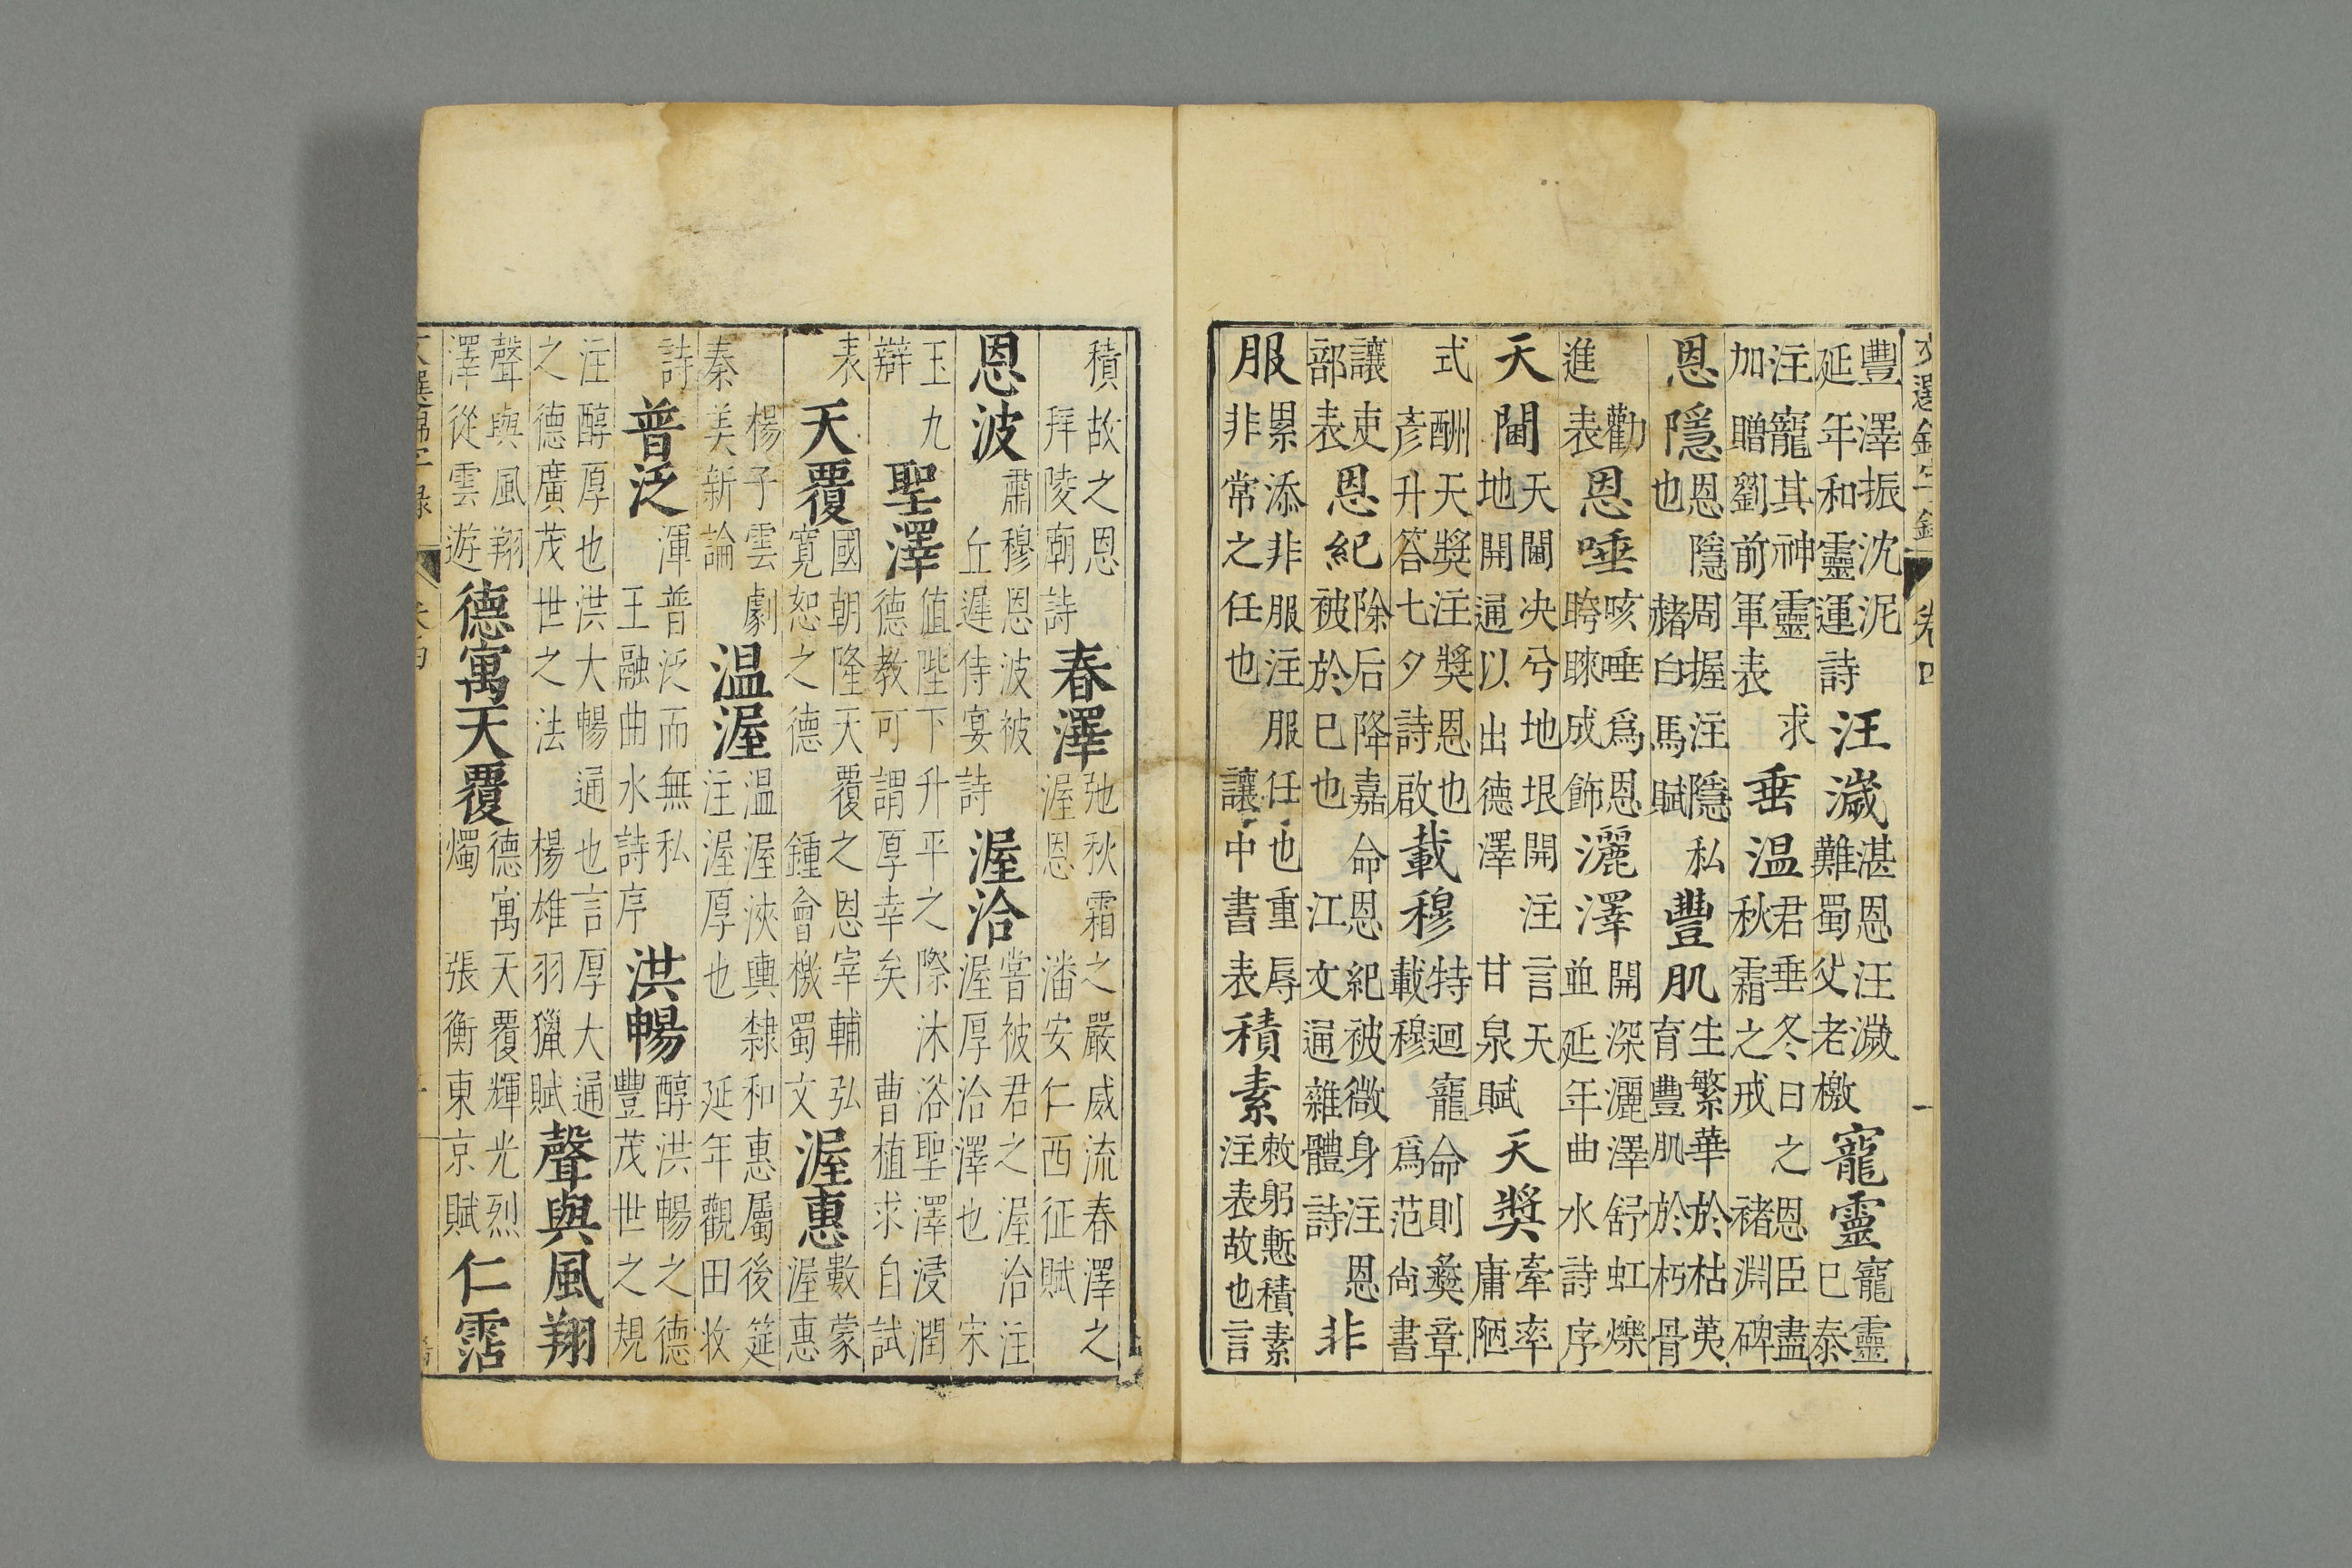 文選錦字錄 卷四 一
豐澤振沈泥延年和靈運詩 汪濊 湛恩汪濊難蜀父老檄 寵靈 寵靈巳泰
注寵其神靈求加贈劉前軍表 垂温 君垂冬日之恩臣盡秋霜之戒褚淵碑
恩隱 恩隱周握注隱私也赭白馬賦 豐肌 生繁華於枯荑育豐肌於朽骨
勸進表 恩唾 咳唾爲恩眄睞成飾 灑澤 開深灑澤舒虹爍並延年曲水詩序
天閫 天閫决兮地垠開注言天地開通以出德澤甘泉賦 天獎 牽率庸陋
式酬天獎注獎恩也彦升答七夕詩啟 載穆 特迴寵命則彜章載穆爲范尚書
讓吏部表 恩紀 除后降嘉命恩紀被微身注恩被於巳也江文通雜體詩 非
服 累添非服注服任也重辱非常之任也讓中書表 積素 敕躬慙積素注表故也言
積故之恩拜陵廟詩 春澤 弛秋霜之嚴威流春澤之渥恩潘安仁西征賦
恩波 肅穆恩波被丘遲侍宴詩 渥洽 嘗被君之渥洽注渥厚洽澤也宋
玉九辯 聖澤 值陛下升平之際沐浴聖澤浸潤德教可謂厚幸矣曹植求自試
表 天覆 國朝隆天覆之恩宰輔弘寬恕之德鍾會檄蜀文 渥惠 數蒙渥惠
楊子雲劇秦美新論 温渥 温渥浹輿隸和惠屬後筵注渥厚也延年觀田收
詩 普泛 渾普泛而無私王融曲水詩序 洪暢 醇洪暢之德豐茂世之規
注醇厚也洪大暢通也言厚大通之德廣茂世之法楊雄羽獵賦 聲與風翔
聲與風翔澤從雲遊 德寓天覆 德寓天覆輝光烈燭張衡東京賦 仁霑